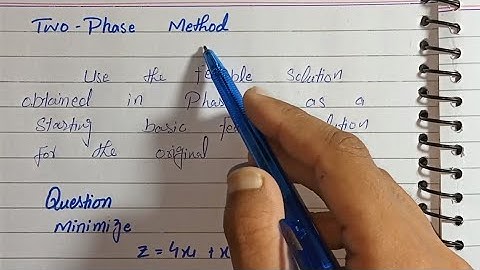 Two-Phase Method
Use the solution
obtained in as a
starting basic
for the original
Question
Minimize
z = 4x₁ +